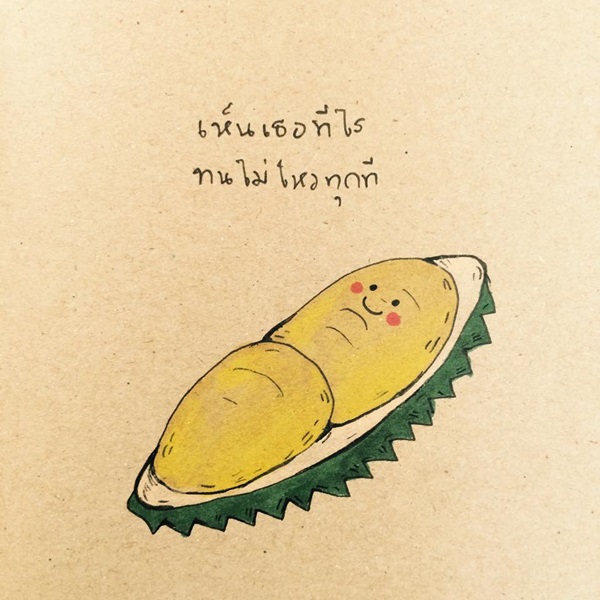 เห็นเธอทีไร
ทนไม่ไหวทุกที